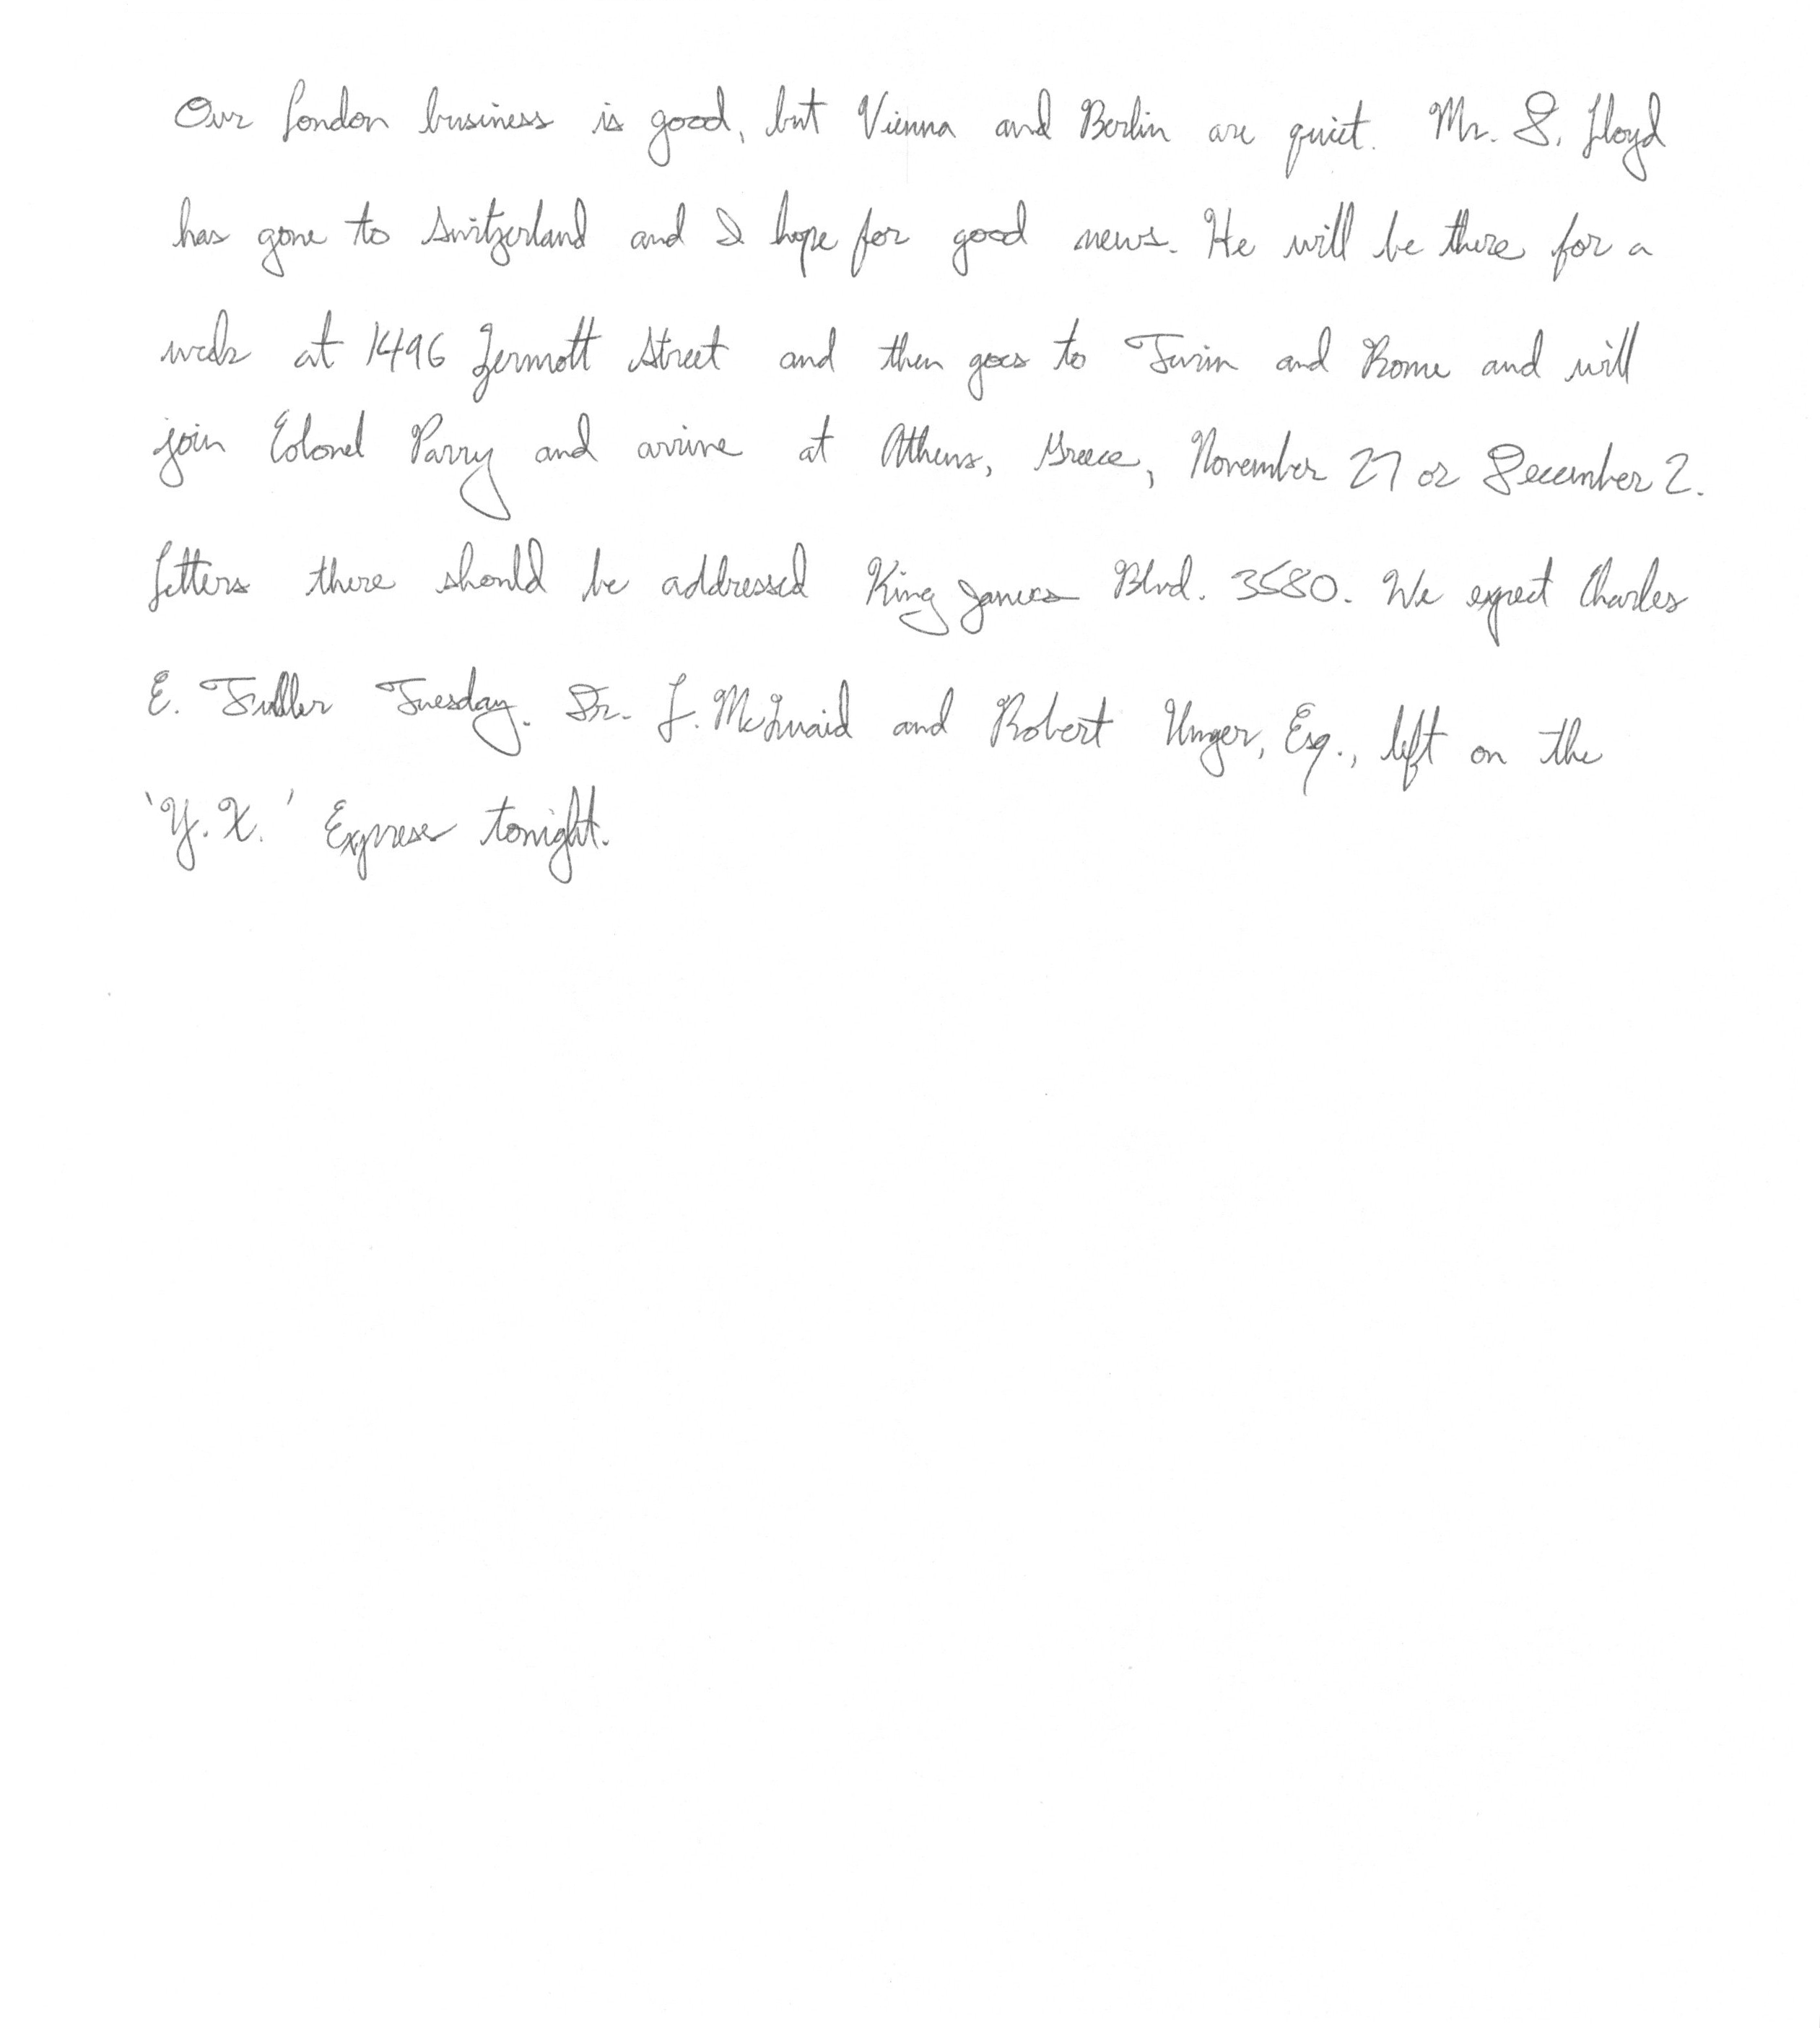 Our London business is good, but Vienna and Berlin are quiet. Mr. D. Lloyd
has gone to Switzerland and I hope for good news. He will be there for a
week at 1496 Zermott Street and then goes to Turin and Rome and will
join Colonel Parry and arrive at Athens, Greece, November 27 or December 2.
Letters there should be addressed King James Blvd. 3580. We expect Charles
E. Fuller Tuesday. Dr. L. McQuaid and Robert Unger, Esq., left on the
'Y.X.' Express tonight.